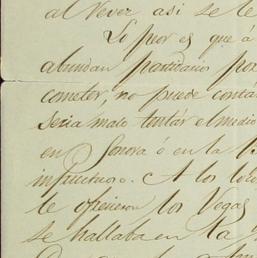 al Never asi se le
Lo peor es que á
abundan partidarios por
cometer, no puede conta
seria malo tentár el medio
en Sonora ó en la
infructuoso. A los
le ofrecieron los Vegas
se hallaba en la